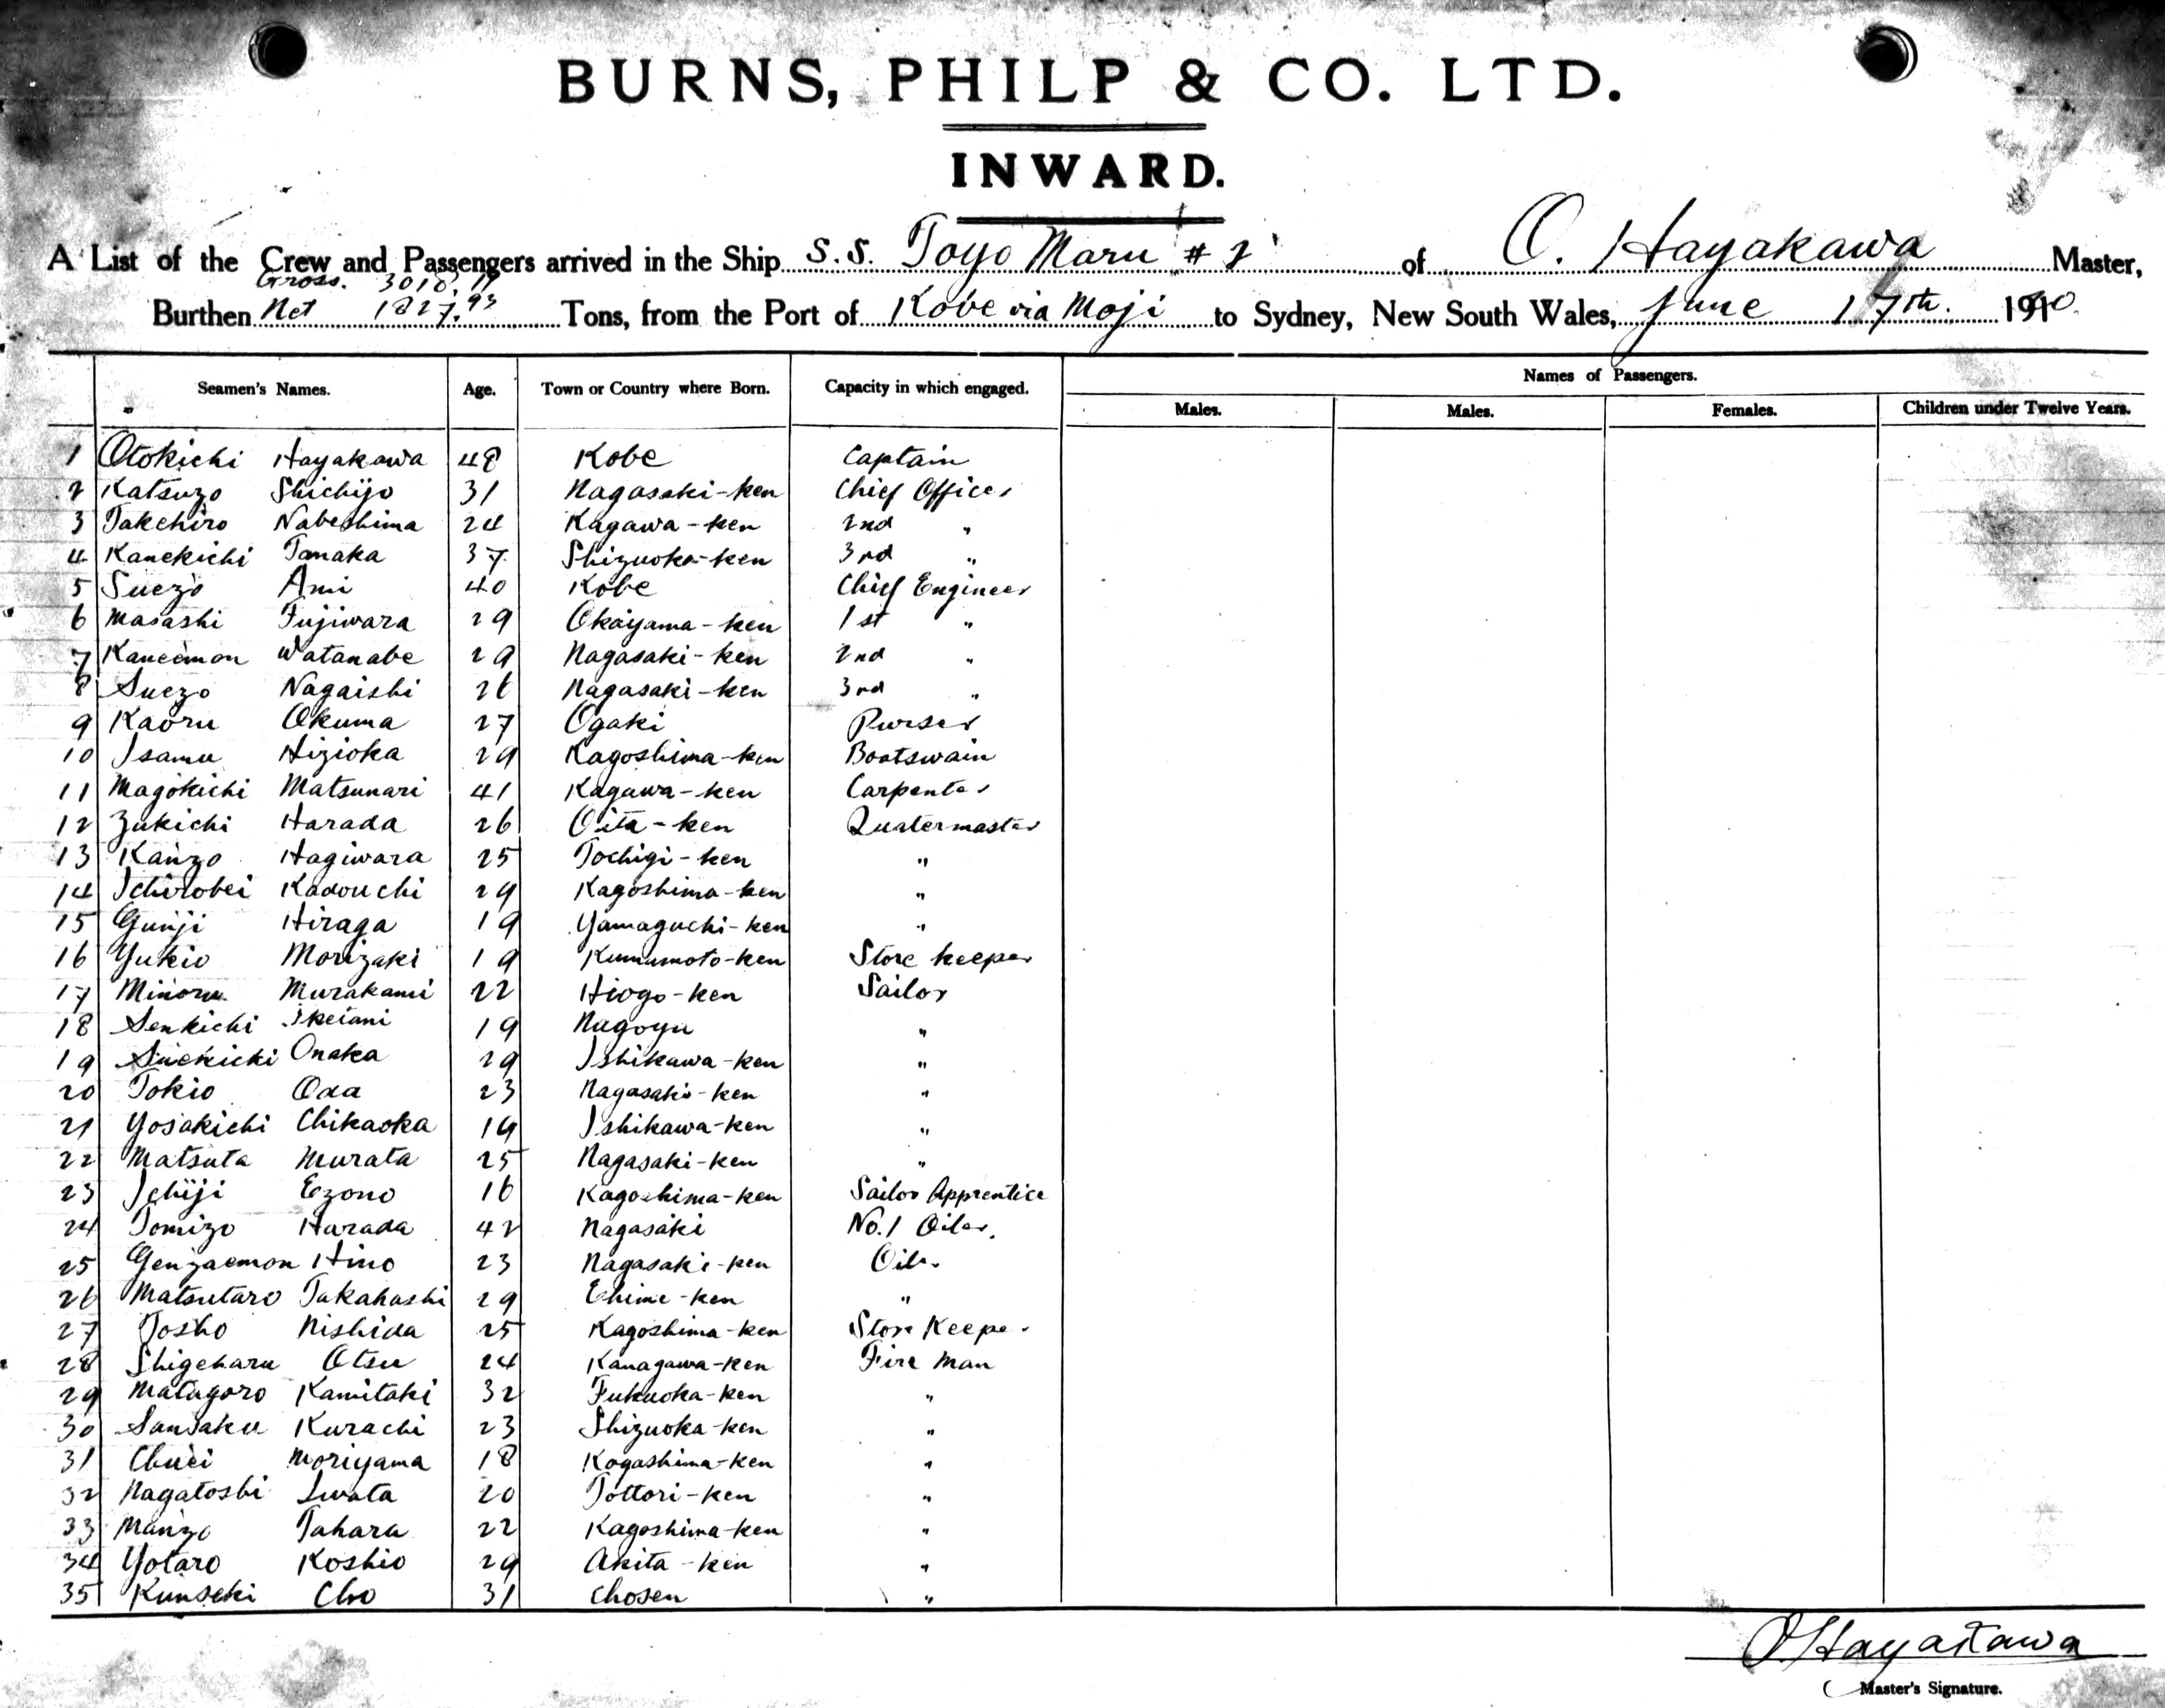 BURNS, PHILP & CO. LTD.
INWARD.
A List of the Crew and Passengers arrived in the Ship S.S. Toyo Maru # 2 of O. Hayakawa Master,
Gross. 3018.19
Burthen Net 1827.93 Tons, from the Port of Kobe via Moji to Sydney, New South Wales, June 17th. 19
Names of Passengers.
Seamen's Names. Age. Town or Country where Born. Capacity in which engaged. Males. Males. Females. Children under Twelve Years.
1 Otokichi Hayakawa 48 Kobe Captain
2 Katsuzo Shichijo 31 Nagasaki-ken Chief Officer
3 Takehiro Nabeshima 24 Kagawa-ken 2nd "
4 Kanekichi Tanaka 37 Shizuoka-ken 3rd "
5 Suezo Ami 40 Kobe Chief Engineer
6 Masashi Fujiwara 29 Okayama-ken 1st "
7 Kaneemon Watanabe 29 Nagasaki-ken 2nd "
8 Suezo Nagaishi 26 Nagasaki-ken 3rd "
9 Kaoru Okuma 27 Ogaki Purser
10 Isamu Hizioka 29 Kagoshima-ken Boatswain
11 Magokichi Matsunari 41 Kagawa-ken Carpenter
12 Zukichi Harada 26 Oita-ken Quatermaster
13 Kanzo Hagiwara 25 Tochigi-ken "
14 Ichirobei Kadouchi 29 Kagoshima-ken "
15 Gunji Hiraga 19 Yamaguchi-ken "
16 Yukio Morizaki 19 Kumamoto-ken Store keeper
17 Minoru Murakami 22 Hiogo-ken Sailor
18 Senkichi Iketani 19 Nagoya "
19 Suekichi Onaka 29 Ishikawa-ken "
20 Tokio Oda 23 Nagasaki-ken "
21 Yosakichi Chikaoka 19 Ishikawa-ken "
22 Matsuta Murata 25 Nagasaki-ken "
23 Ichiji Ezono 16 Kagoshima-ken Sailor Apprentice
24 Tomizo Harada 42 Nagasaki No.1 Oiler.
25 Genzaemon Hino 23 Nagasaki-ken Oiler
26 Matsutaro Takahashi 29 Ehime-ken "
27 Tosho Nishida 25 Kagoshima-ken Store Keeper
28 Shigeharu Otsu 24 Kanagawa-ken Fire man
29 Matagoro Kamitaki 32 Fukuoka-ken "
30 Sansaku Kurachi 23 Shizuoka-ken "
31 Chuei Moriyama 18 Kogashima-ken "
32 Nagatoshi Iwata 20 Tottori-ken "
33 Manzo Tahara 22 Kagoshima-ken "
34 Yotaro Koshio 29 Akita-ken "
35 Kunseki Cho 31 Chosen "
O. Hayakawa
Master's Signature.